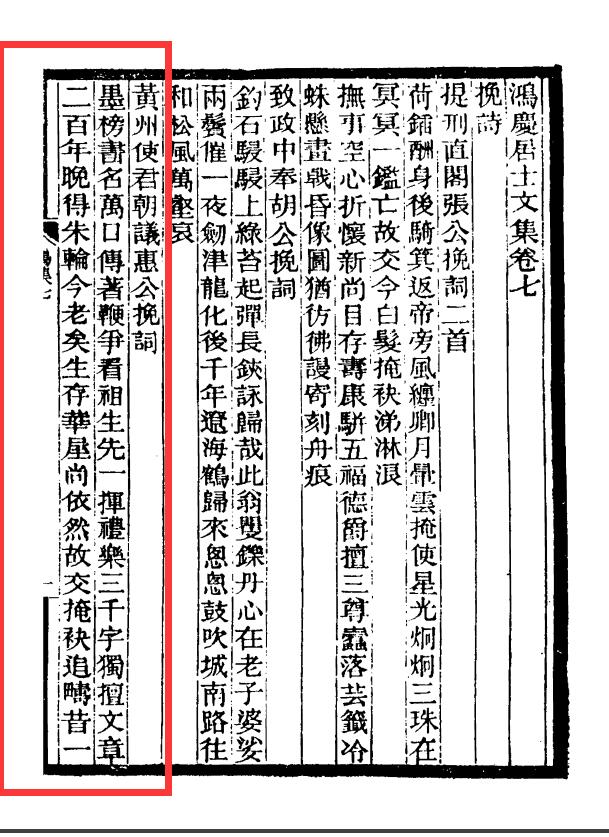 鴻慶居士文集卷七
挽詩
提刑直閣張公挽詞二首
荷鍤酬身後騎箕返帝旁風纏卿月暈雲掩使星光炯炯三珠在
冥冥一鑑亡故交今白髮掩袂涕淋浪
撫事空心折懷新尚目存壽康駢五福德爵擅三尊蠹落芸籤冷
蛛懸畫戟昏像圖猶彷彿謾寄刻舟痕
致政中奉胡公挽詞
釣石駸駸上綠苔起彈長鋏詠歸哉此翁矍鑠丹心在老子婆娑
兩鬢催一夜劒津龍化後千年遼海鶴歸來悤悤鼓吹城南路往
和松風萬壑哀
黃州使君朝議惠公挽詞
墨榜書名萬口傳著鞭爭看祖生先一揮禮樂三千字獨擅文章
二百年晚得朱輪今老矣生存華屋尚依然故交掩袂追疇昔一
集七
一